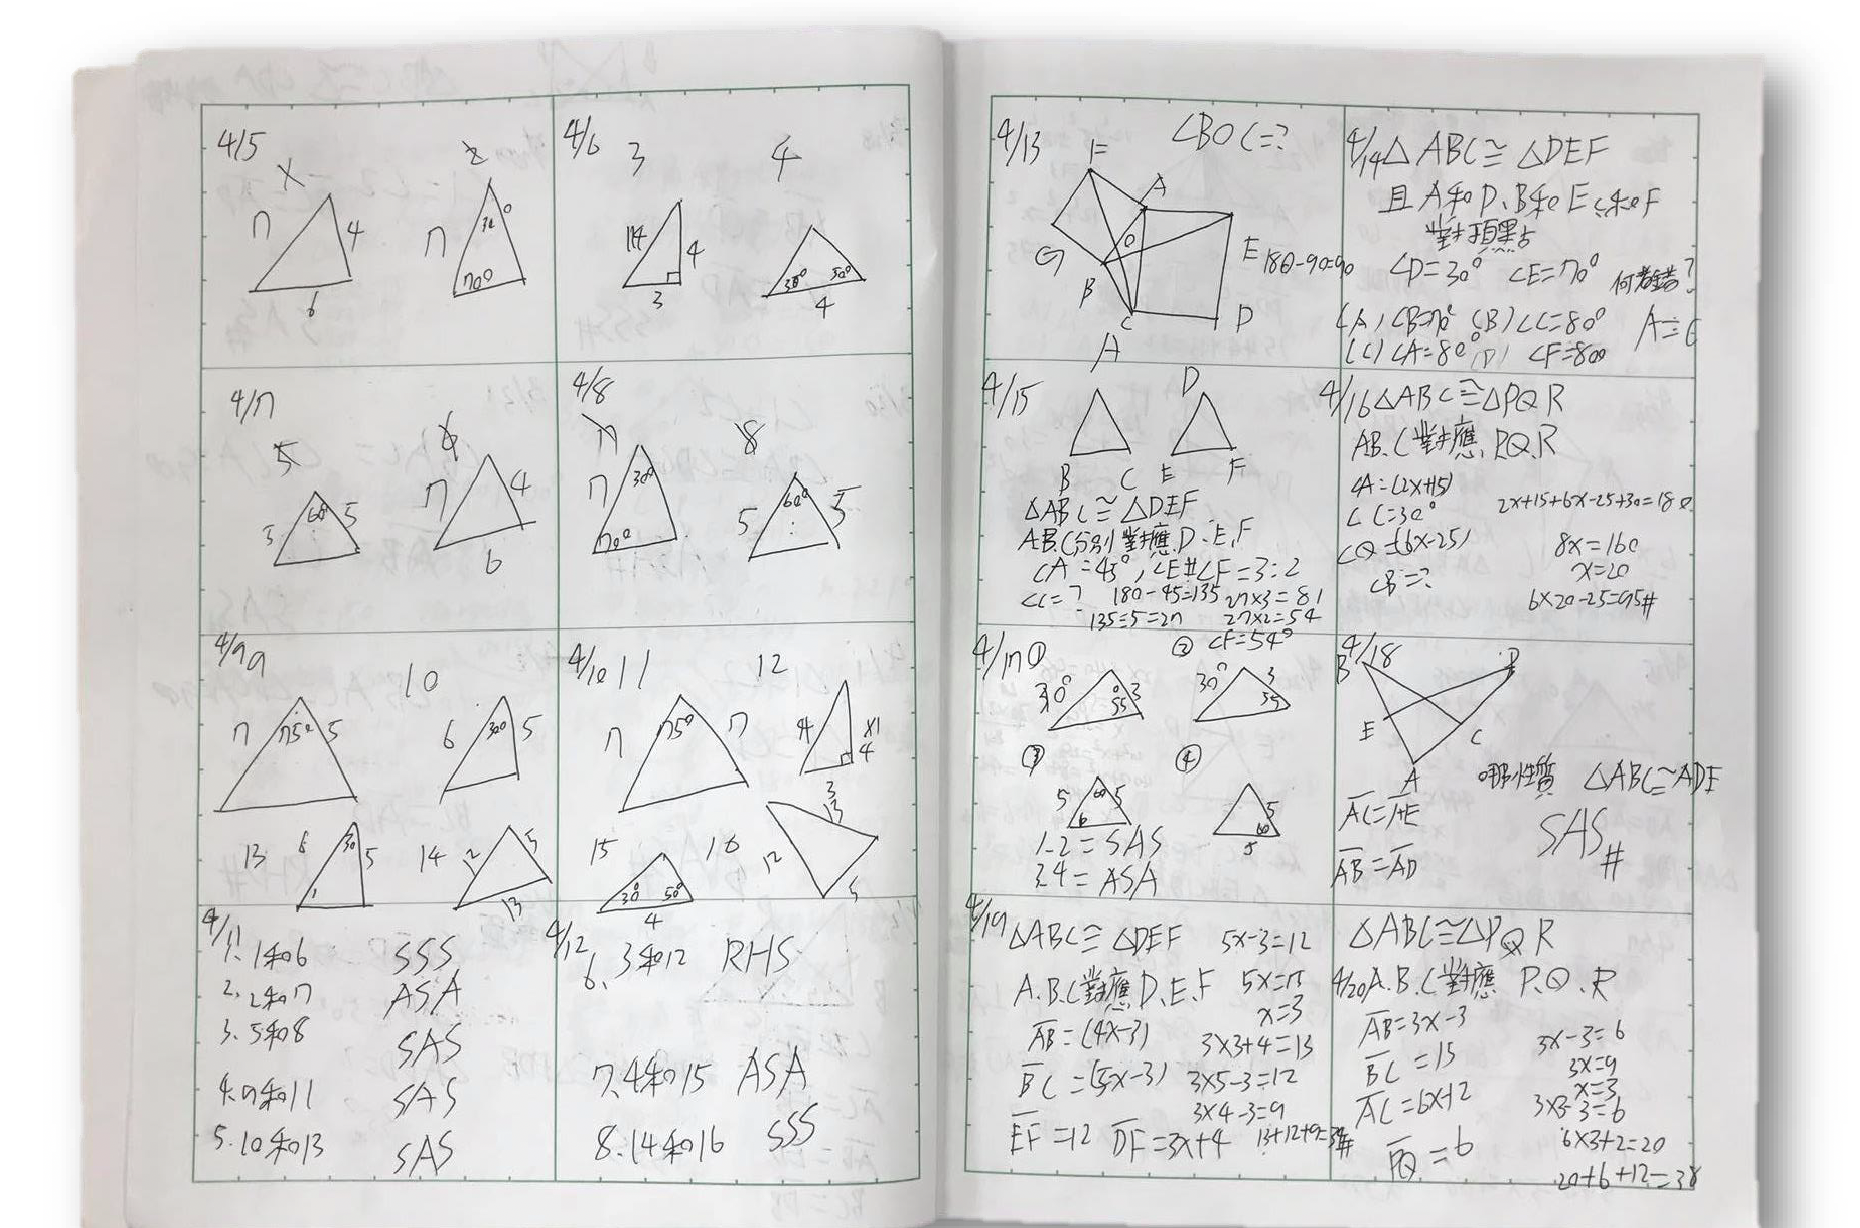 4/5
x
2
7
4
6
7
70°
4/6
3
4
4
3
30°
50°
4
4/7
5
6
60°
5
7
4
6
4/8
7
8
7
30°
70°
60°
5
5
4/9
9
10
7
75°
5
6
30°
5
13
6
30
5
14
12
5
13
4/10
11
12
7
75°
7
4
3
15
30°
50°
4
16
13
12
5
4/11
1. 1和6 SSS
2. 2和7 ASA
3. 5和8 SAS
4. 9和11 SAS
5. 10和13 SAS
4/12
6. 3和12 RHS
7. 4和15 ASA
8. 14和16 SSS
4/13
∠BOC=?
F
A
G
O
E
B
C
D
180-90=90
4/14
△ABC≅△DEF
且A和D、B和E、C和F
對應頂點
∠D=30° ∠E=70° 何者錯?
(A)∠B=70° (B)∠C=80°
(C)∠A=80° (D) ∠F=80°
4/15
A
D
B C E F
△ABC≅△DEF
A.B.C分別對應D、E、F
∠A=45°, ∠E ∠F=3:2
∠C=? 180-45=135 27×3=81
135÷5=27 27×2=54
∠F=54°
4/16
△ABC≅△PQR
AB.C對應P.Q.R
∠A=(2x+15)
∠C=30°
∠Q=(6x-25)
∠B=?
2x+15+6x-25+30=180
8x=160
x=20
6×20-25=95#
4/17
①
30°
3
55
②
30°
3
55
③
5
60
5
④
5
60
5
1-2=SAS
3.4=ASA
4/18
B
D
E
C
A
哪個性質 △ABC≅ADE
AC=AE
AB=AD
SAS#
4/19
△ABC≅△DEF
A.B.C對應D.E.F
AB=(4x-3)
BC=(5x-3)
EF=12 DF=3x+4
5x-3=12
5x=15
x=3
3×3+4=13
3×5-3=12
3×4-3=9
13+12+9=34#
△ABC≅△PQR
4/20 A.B.C對應 P.Q.R
AB=3x-3
BC=15
AC=6x+2
PQ=6
3x-3=6
3x=9
x=3
3×3-3=6
6×3+2=20
20+6+12=38